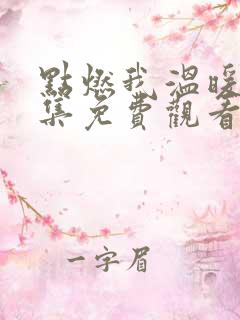 點燃我溫暖
集免費觀看
一字眉